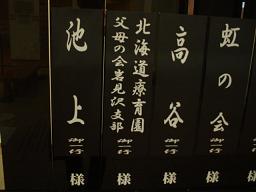 虹の会
御一行
様
高谷
御一行
様
北海道療育園
父母の会岩見沢支部
様
池上
御一行
様